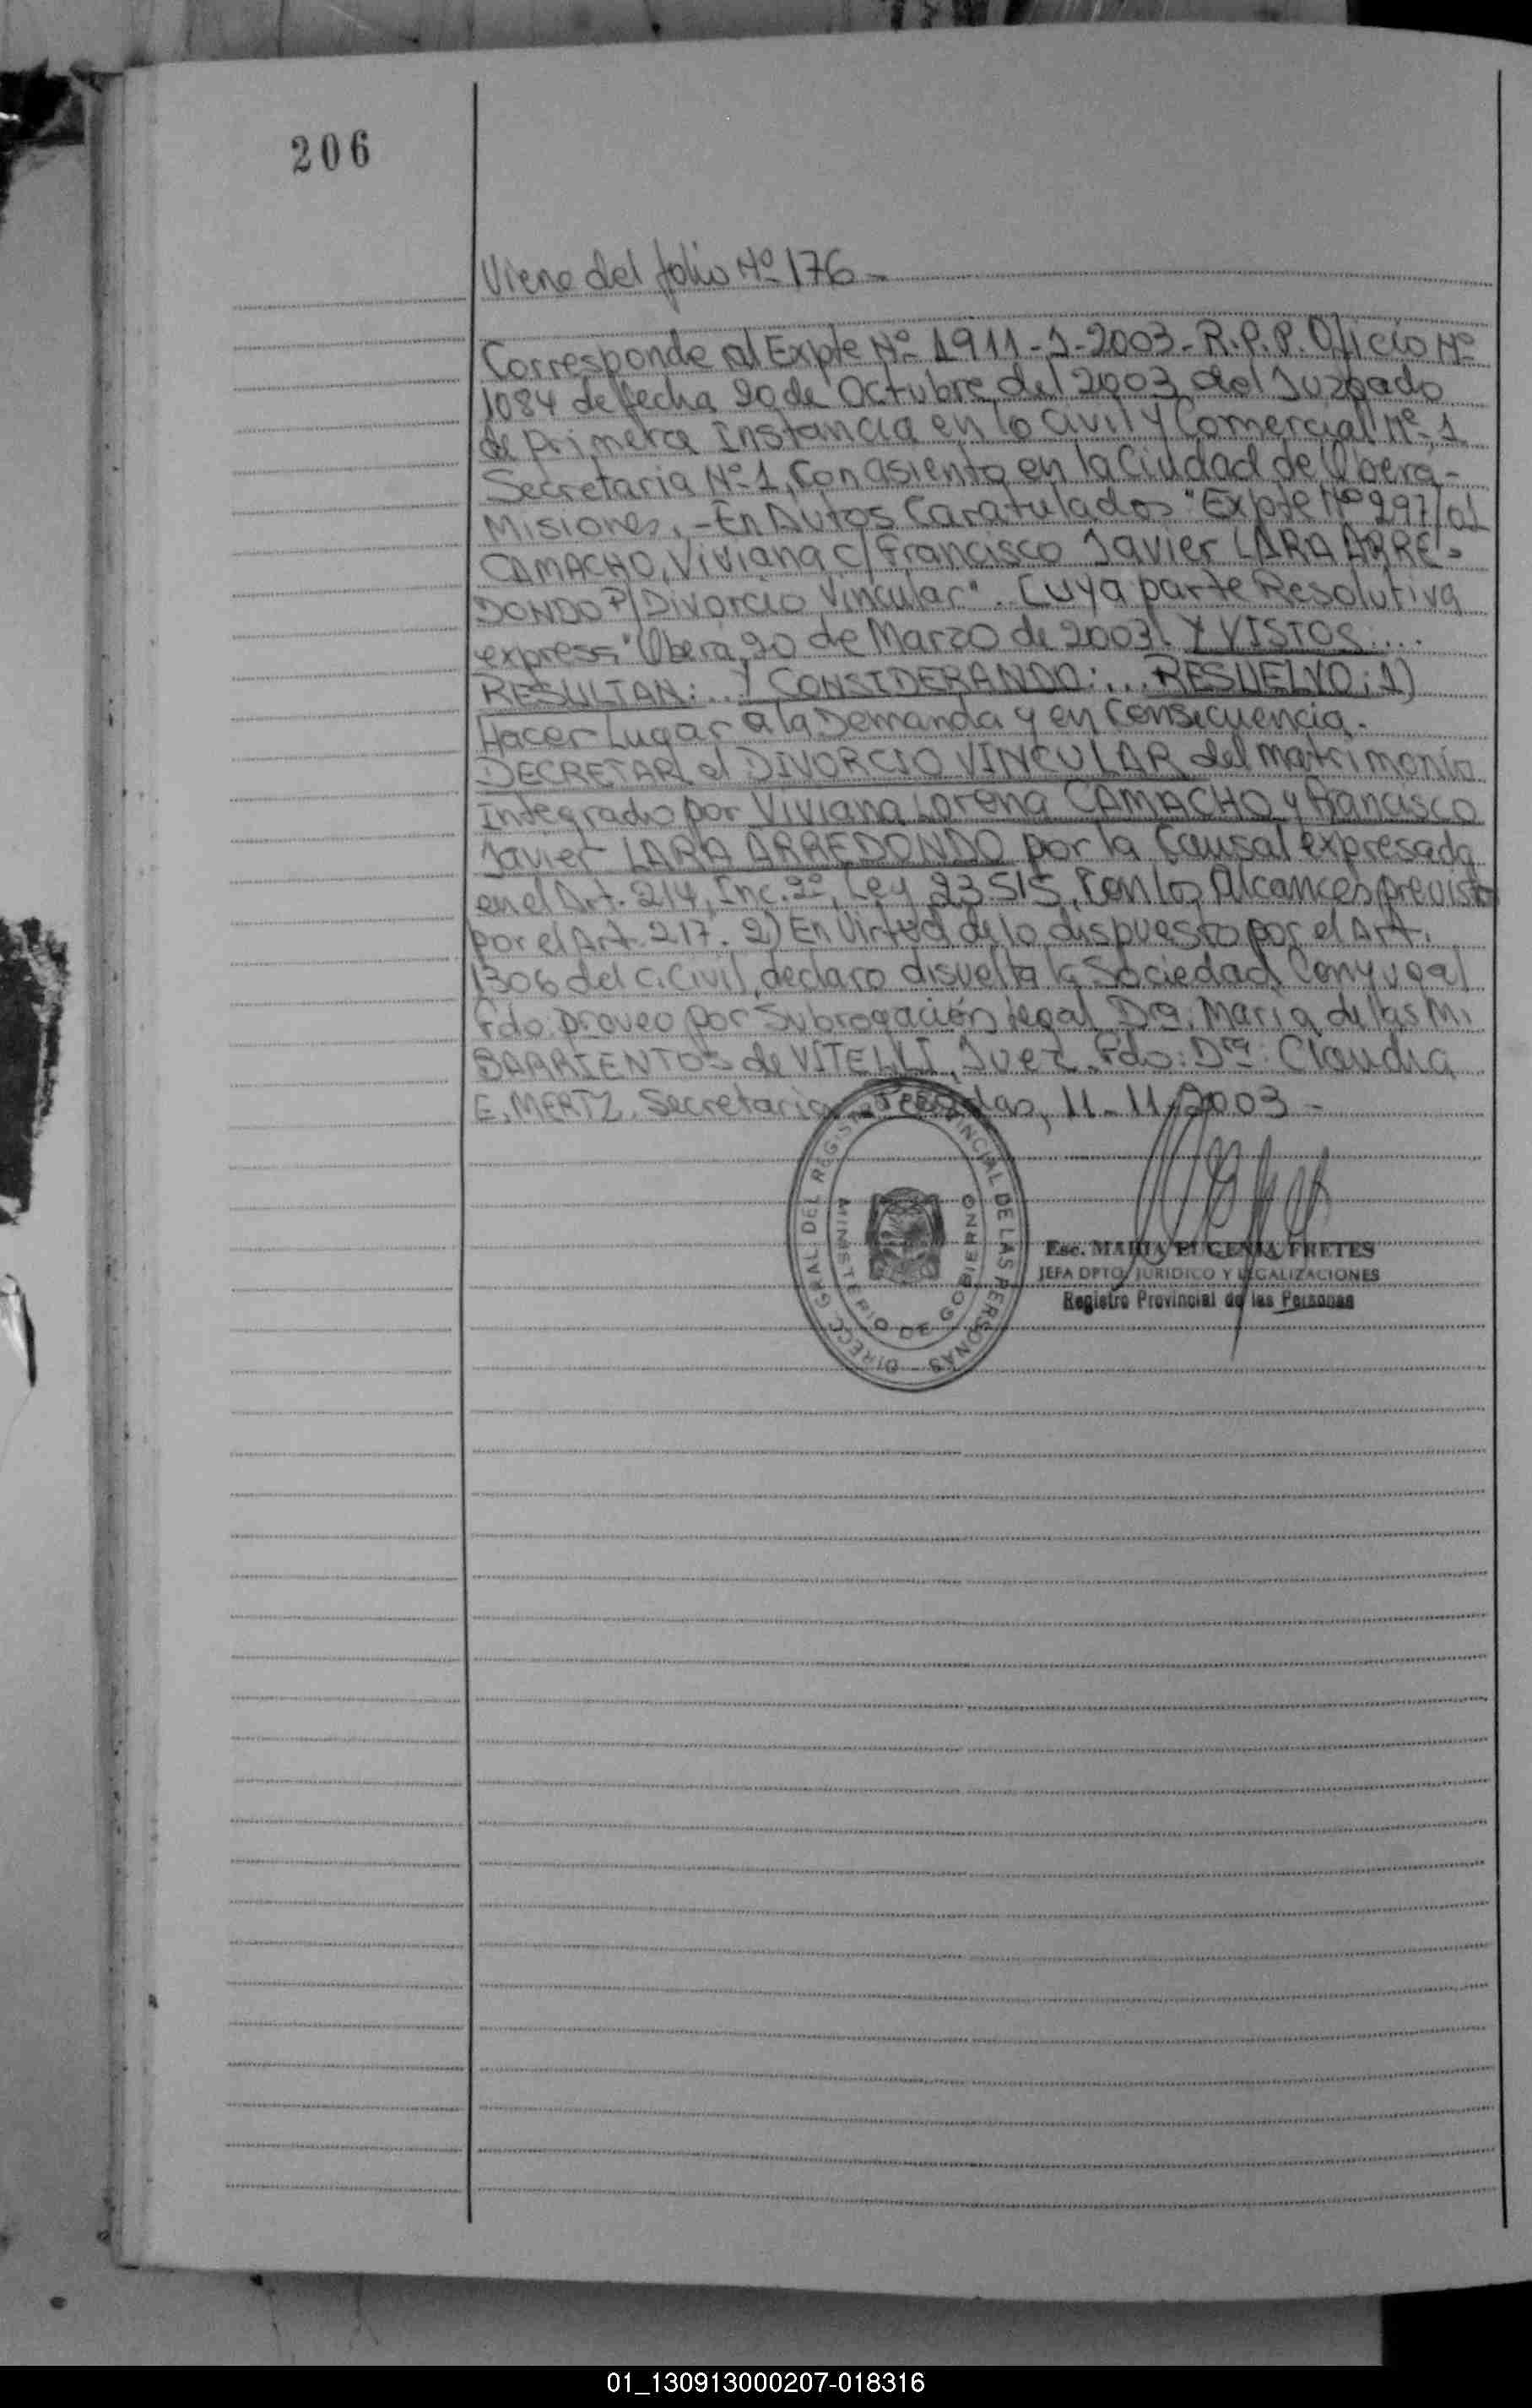 206
Viene del folio Nº 176 -
Corresponde al Expte Nº 1911-J-2003- R.P.P. Oficio Nº
1084 de fecha 20 de Octubre del 2003 del Juzgado
de primera Instancia en lo Civil y Comercial Nº 1
Secretaria Nº 1, Con asiento en la Ciudad de Obera-
Misiones, - En Autos Caratulados "Expte Nº 297/01
CAMACHO, Viviana c/ Francisco Javier LARA ARRE-
DONDO P/ Divorcio Vincular". Cuya parte Resolutiva
expresa "Obera, 20 de Marzo de 2003. Y VISTOS: ...
RESULTAN: ... Y CONSIDERANDO: ... RESUELVO: 1)
Hacer Lugar a la Demanda y en Consecuencia.
DECRETAR el DIVORCIO VINCULAR del matrimonio
Integrado por Viviana Lorena CAMACHO y Francisco
Javier LARA ARREDONDO por la Causal expresada
en el Art. 214, Inc. 2º, Ley 23.515, Con los Alcances previsto
por el Art. 217. 2) En Virtud de lo dispuesto por el Art.
1306 del C. Civil, declaro disuelta la Sociedad Conyugal
Fdo. proveo por Subrogación legal Dra. Maria de las M.
BARRIENTOS de VITELLI, Juez. Fdo: Dra: Claudia
E. MERTZ. Secretaria. Posadas, 11-11-2003 -
DIRECC GRAL DEL REGISTRO PROVINCIAL DE LAS PERSONAS -
MINISTERIO DE GOBIERNO
Esc. MARIA EUGENIA FRETES
JEFA DPTO. JURIDICO Y LEGALIZACIONES
Registro Provincial de las Personas
01_130913000207-018316